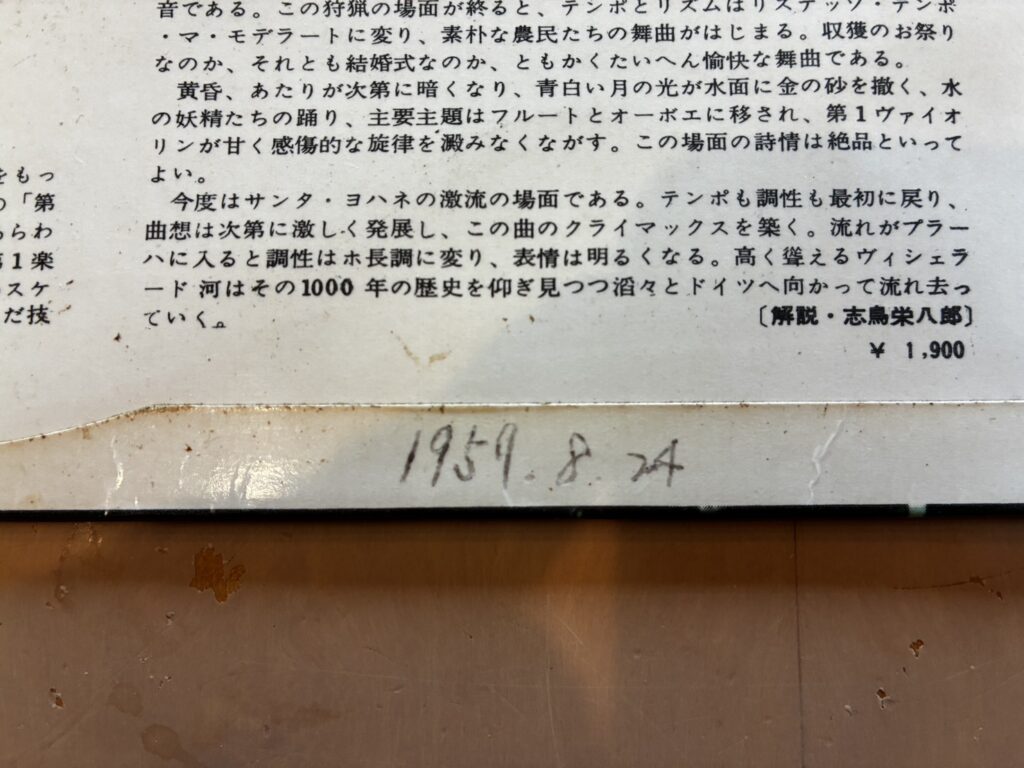 音である。この狩猟の場面が終ると、テンポとリズムはリステッソ・テンポ
・マ・モデラートに変り、素朴な農民たちの舞曲がはじまる。収獲のお祭り
なのか、それとも結婚式なのか、ともかくたいへん愉快な舞曲である。
黄昏、あたりが次第に暗くなり、青白い月の光が水面に金の砂を撒く、水
の妖精たちの踊り、主要主題はフルートとオーボエに移され、第1ヴァイオ
リンが甘く感傷的な旋律を澱みなくながす。この場面の詩情は絶品といって
よい。
今度はサンタ・ヨハネの激流の場面である。テンポも調性も最初に戻り、
曲想は次第に激しく発展し、この曲のクライマックスを築く。流れがプラー
ハに入ると調性はホ長調に変り、表情は明るくなる。高く聳えるヴィシェラ
ード河はその1000年の歴史を仰ぎ見つつ滔々とドイツへ向かって流れ去っ
ていく。
〔解説・志鳥栄八郎〕
¥ 1,900
をもっ
の「第
あらわ
第1楽
のスケ
だ技
1959. 8. 24